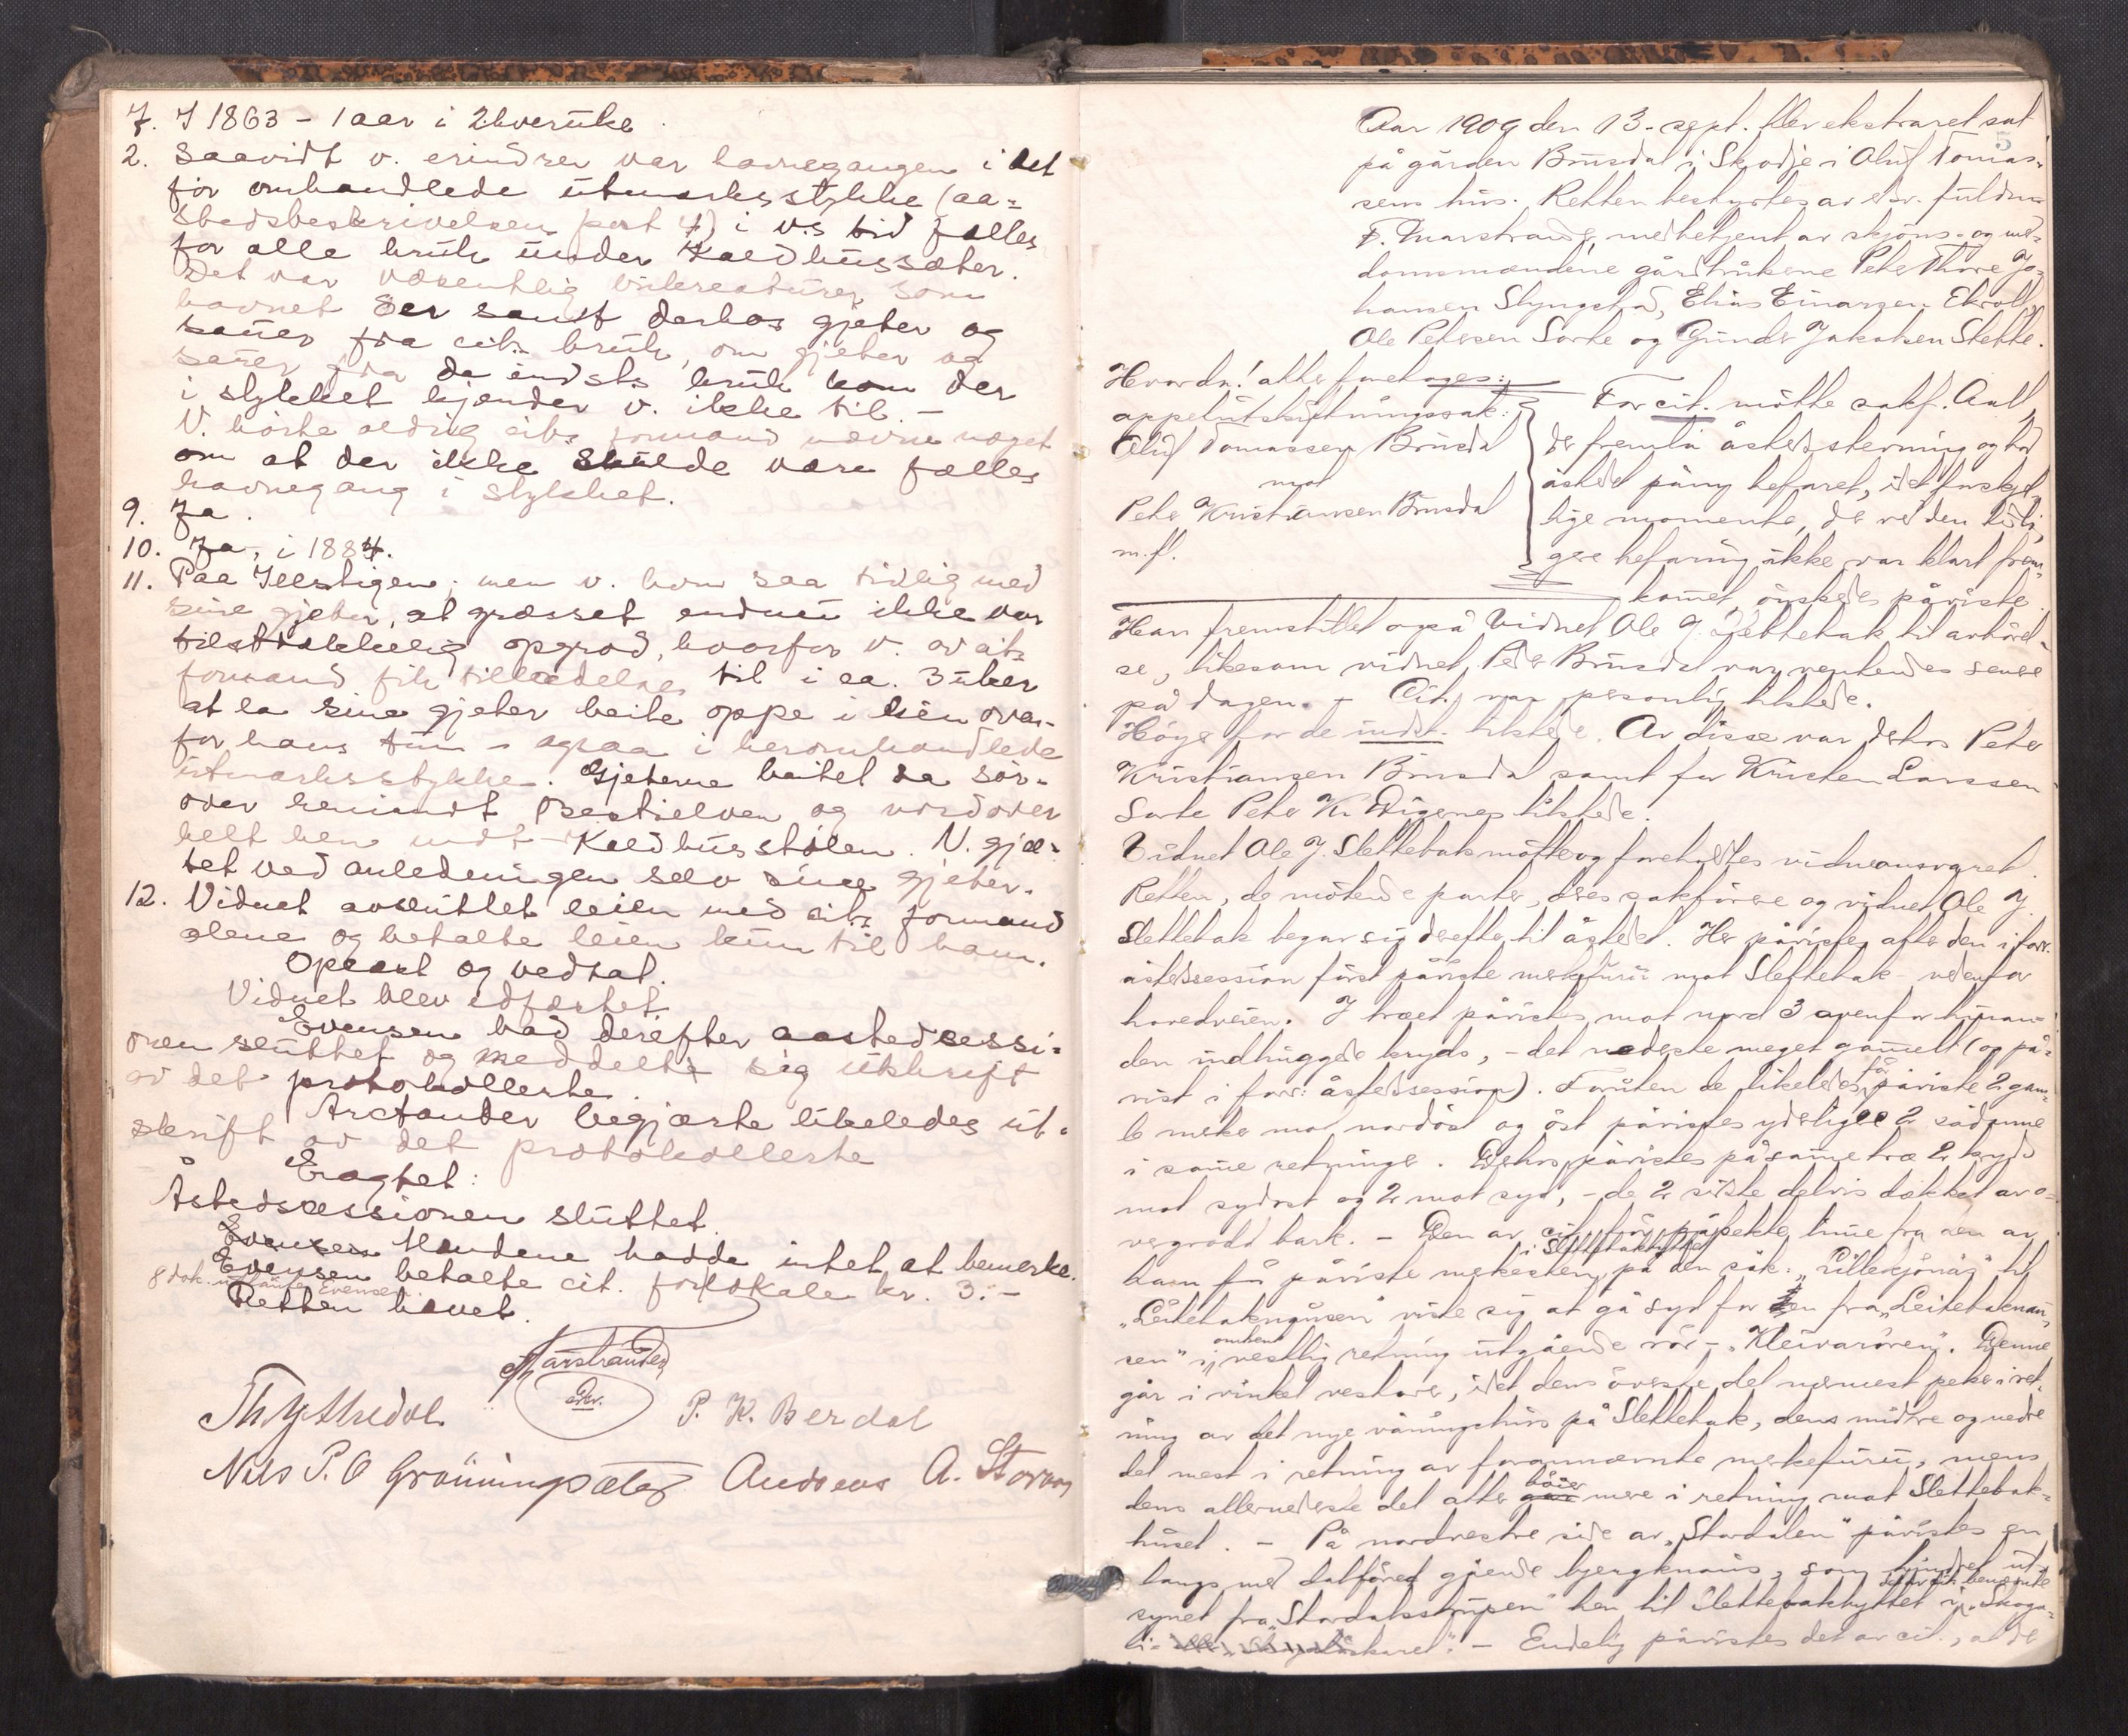 7. I 1863 - 1 aar i 2 hveruke.
2. Saavidt v. erindrer var havnegangen i det
før omhandlede utmarksstykke (aa-
stedsbeskrivelsen post 4) i v.s tid fælles
for alle bruk under Kaldhussæter.
Det var væsentlig ukreaturer som
havnet der samt derhos gjeter og
sauer fra cit.s bruk, om gjeter og
sauer fra de indst.s bruk kom der
i stykket kjender v. ikke til. -
V. hørte aldrig cit.s formand nævne noget
om at der ikke skulde være fælles
havnegang i stykket.
9. Ja.
10. Ja, i 1884.
11. Paa Ilstigen; men v. kom saa tidlig med
sine gjeter, at græsset endnu ikke var
tilstrækkelig opgrod, hvorfor v. av cit.s
formand fik tilladelse til i ca. 3 uker
at la sine gjeter beite oppe i lien oven-
for hans tun - ogsaa i heromhandlede
utmarksstykke. Gjeterne beitet da sør-
over henimot Bestielven og nordover
helt hen mot Kaldhusstølen. V. gjæ-
tet ved anledningen selv sine gjeter.
12. Vidnet avsluttet leien med cit.s formand
alene og betalte leien kun til ham.
Oplæst og vedtat.
Vidnet blev edfæstet.
Evensen bad derefter aastedsessi-
onen sluttet og meddelt sig utskrift
av det protokollerte.
Arctander begjærte likeledes ut-
skrift av det protokollerte
Eragtet:
Åstedsessionen sluttet.
Mændene hadde intet at bemerke.
Evensen betalte cit. for lokale kr. 3.-
8 dok. Evensen.
Retten hævet.
Marstrander
P. K. Berdal
Nils P. O Grønningsæter Andreas A. Storaas
5
Aar 1909 den 13. sept. blev ekstraret sat
på gården Brusdal i Skodje i Oluf Tomas-
sens hus. Retten bestyrtes av edsv. fuldm.
F. Marstrander, medbetjent av skjøns- og med-
domsmændene gårdbrukerne Peter Thore Jo-
hansen Slyngstad, Elias Einarsen Ekroll,
Ole Petersen Sorte og Gunder Jakobsen Stette.
Hvorda! atter foretages:
appelutskiftningssak:
Oluf Tomassen Brusdal
mot
Peter Kristiansen Brusdal
m.fl.
For cit. møtte sakf. Aall,
der fremla åstedsstevning og bad
åstedet påny befaret, idet forskjel-
lige momenter, der ved den tidli-
gere befaring ikke var klart frem-
komet, ønskedes påviste.
Han fremstillet også vidnet Ole J. Slettebak til avhørel-
se, likesom vidnet Peder Brusdal var ventendes senere
på dagen. - Cit. var personlig tilstede.
Høyer for de indst. tilstede. Av disse var derhos Peter
Kristiansen Brusdal samt for Kristen Larssen
Sorte Peter K. Digernes tilstede.
Vidnet Ole J. Slettebak møtte og foreholdtes vidneansvaret.
Retten, de møtende parter, deres sakførere og vidnet Ole J.
Slettebak begav sig derefter til åstedet. Her påvistes atter den i forr.
åstedssession først påviste merkefuru mot Slettebak - nedenfor
hovedveien. I træet påvistes mot nord 3 ovenfor hinan-
den indhuggede kryds, - det nederste meget gamelt (og på-
vist i forr. åstedssession). Foruten de likeledes før påviste 2 gam-
le merker mot nordøst og øst påvistes yderligere 2 sådanne
i samme retninger. Derhos påvistes på samme træ 2 kryds
mot sydost og 2 mot syd, - de 2 siste delvis dækket av o-
vergrodd bark. - Den av cit. før påpekte linie fra den av
ham før påviste merkesten i Slettebakbyttet på den såk. "Lillekjønåsj" til
"Leitebaknausen" viste sig at gå syd for den fra "Leitebaknau-
sen" i omtrent vestlig retning utgående rør - "Kleivarøren". Denne
går i vinkel vestover, idet dens øverste del nærmest peker i ret-
ning av det nye våningshus på Slettebak, dens midtre og nedre
del mest i retning av forannævnte merkefuru, mens
dens allernederste del atter bøier mere i retning mot Slettebak-
huset. - På nordvestre side av "Stordalen" påvistes en
langs med dalføret gående bjergknaus, som hindret ut-
synet fra "Stordalsstrupen" hen til Slettebakbyttet i det av cit. benævnte "Skoga-
li- skaret". - Endelig påvistes det av cit., at de